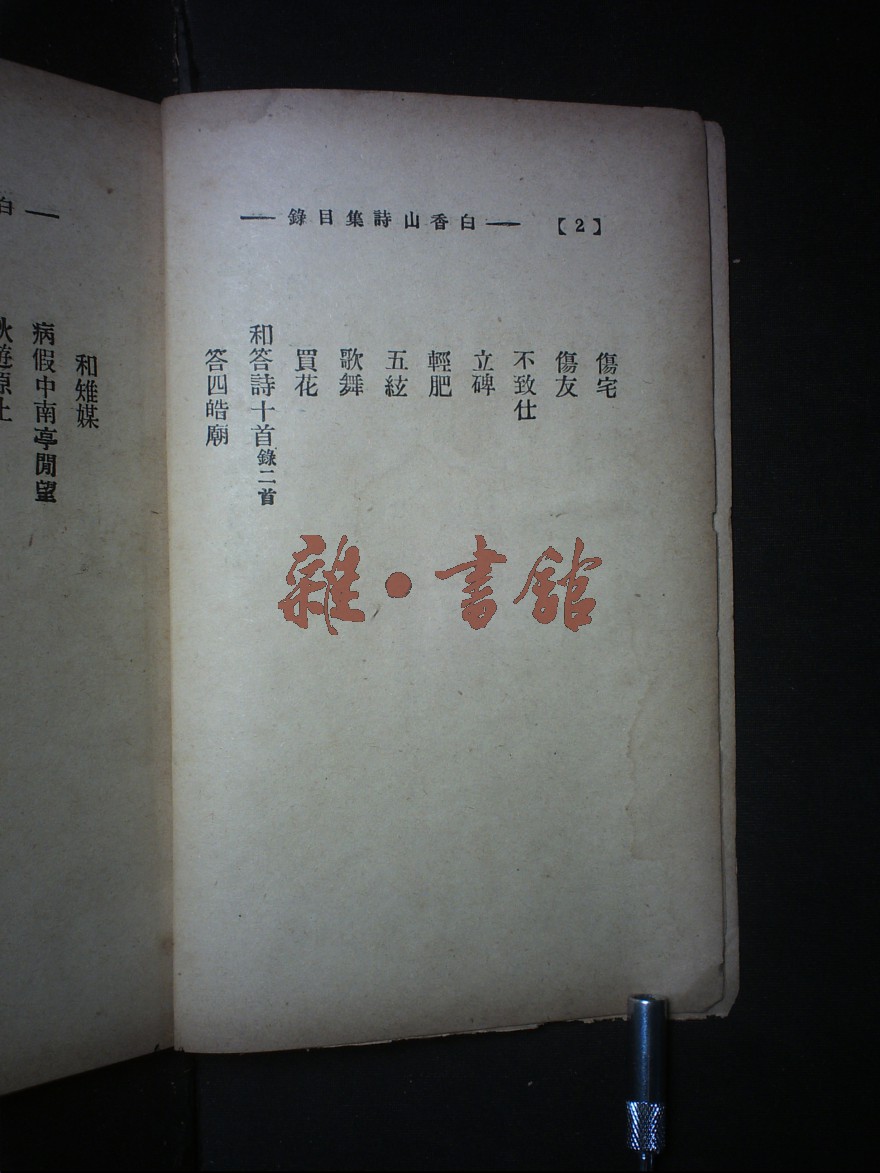 【2】 — 白香山詩集目錄 —
傷宅
傷友
不致仕
立碑
輕肥
五絃
歌舞
買花
和答詩十首錄二首
答四皓廟
白 —
和雉媒
病假中南亭閒望
秋遊原上
雜·書館